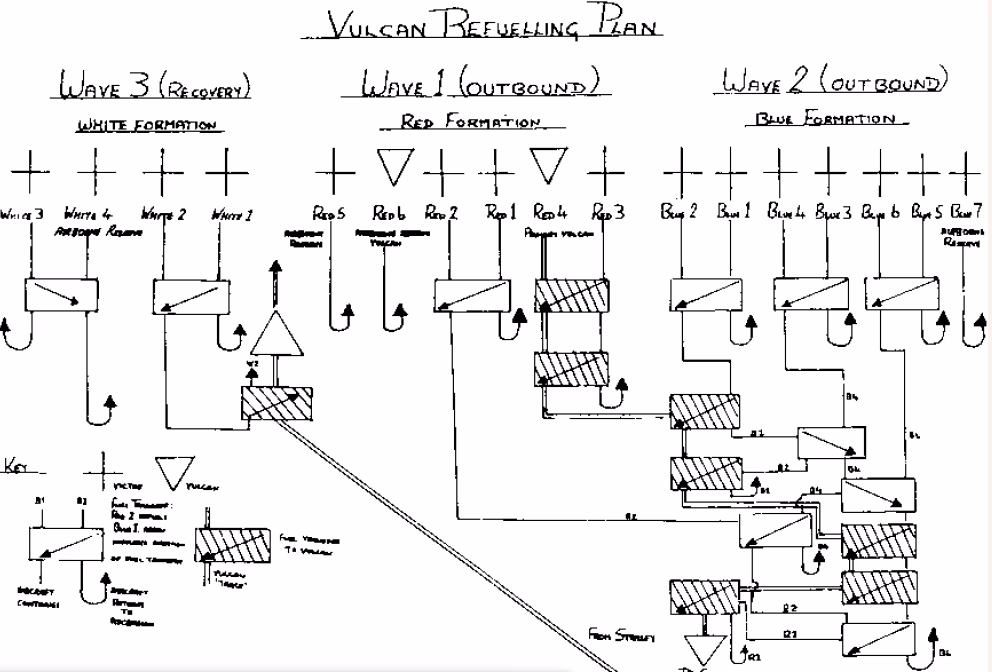 VULCAN REFUELLING PLAN
WAVE 3 (RECOVERY)
WHITE FORMATION
WAVE 1 (OUTBOUND)
RED FORMATION
WAVE 2 (OUTBOUND)
BLUE FORMATION
WHITE 3
WHITE 4
WHITE 2
WHITE 1
RED 5
RED 6
RED 2
RED 1
RED 4
RED 3
BLUE 2
BLUE 1
BLUE 4
BLUE 3
BLUE 6
BLUE 5
BLUE 7
AIRBORNE RESERVE
AIRBORNE
RESERVE
AIRBORNE RESERVE
VULCAN
PRIMARY VULCAN
AIRBORNE
RESERVE
W2
B4
B2
B2
B4
B1
B4
R2
R2
R2
B4
FROM STANLEY
KEY
VICTOR
VULCAN
B1
B2
FUEL TRANSFER:
OF FUEL TRANSFER
FUEL TRANSFER
TO VULCAN
AIRCRAFT
CONTINUES
AIRCRAFT
RETURNS
TO
ASCENSION
VULCAN